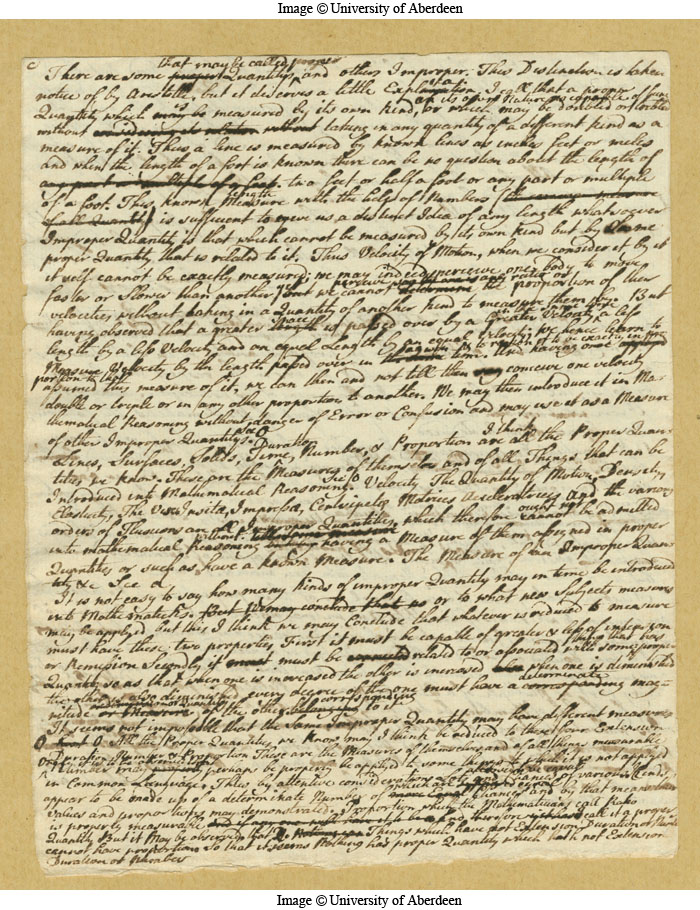 Image © University of Aberdeen
c
that may be called proper
There are some proper Quantitys, and others Improper. This Distinction is taken
notice of by Aristotle, but it deserves a little Explanation. I call that a proper
Quantity which may be measured by its own kind, or which
without taking in any quantity of a different kind as a
measure of it. Thus a line is measured by known lines as inches feet or miles
and when the length of a foot is known there can be no question about the length of
two feet or half a foot or any part or multiple
length
of a foot. This known Measure with the help of Numbers
of all Quantity is sufficient to give us a distinct Idea of any length whatsoever
Improper Quantity is that which cannot be measured by its own kind but by some
proper Quantity that is related to it. Thus Velocity of Motion, when we consider it by it
it self cannot be exactly measured; we may indeed perceive one body to move
faster or slower than another but we cannot the proportion of their
velocities without taking in a Quantity of another kind to measure them by. But
having observed that a greater length is passed over by a greater Velocity, a less
length by a less Velocity and an equal Length by an equal Velocity; we hence learn to
Measure Velocity by the length passed over in time. And having once
portion to length
assured this measure of it, we can then and not till then conceive one velocity
double or triple or in any other proportion to another. We may then introduce it in Ma-
thematical Reasoning without danger of Error or Confusion and may use it as a Measure
of other Improper Quantitys.
Duration I think
Lines, Surfaces, Solids, Time, Number, & Proportion are all the Proper Quan-
titys we know. These are the Measures of themselves and of all Things that can be
Introduced into Mathematical Reasoning. Velocity The Quantity of Motion, Density,
Elasticity, The Vis Insita, Impressa, Centripeta Motrices Acceleratrices and the various
ought not
orders of Fluxions are all Improper Quantities, which therefore cannot be admitted
into mathematical Reasoning without having a Measure of them assigned in proper
Quantity, or such as have a known Measure. The Measure of an Improper Quan-
tity &c See d
It is not easy to say how many kinds of improper Quantity may in time be introduced
into Mathematicks or to what new Subjects measures
may be applyed but this I think we may Conclude that whatever is reduced to measure
must have these two properties. First it must be capable of greater & less of intension
or Remission Secondly it must be related to or associated with something that has proper
Quantity so as that when one is increased the other is increased when one is diminished
determinate
the other is also diminished every degree of the one must have a corresponding mag-
nitude or Measure of the other corresponding to it
It seems not impossible that the Same Improper Quantity may have different measures
All the Proper Quantitys we know may I think be reduced to these four Extension
Duration Number & Proportion These are the Measures of themselves and of all things measurable
Number may perhaps be properly be applied to some things to which it is not applyed
in Common Language. Thus by attentive consideration Chances of various kinds,
appear to be made up of a determinate Number of Chances and by that means their
values and proportions may be demonstrated. Proportion which the Mathematicians call Ratio
is properly measurable and therefore call it a proper
Quantity But it may be observed that Things which have not Extension Duration or Number
cannot have proportion So that it seems Nothing has proper Quantity which hath not Extension
Duration or Number
Image © University of Aberdeen